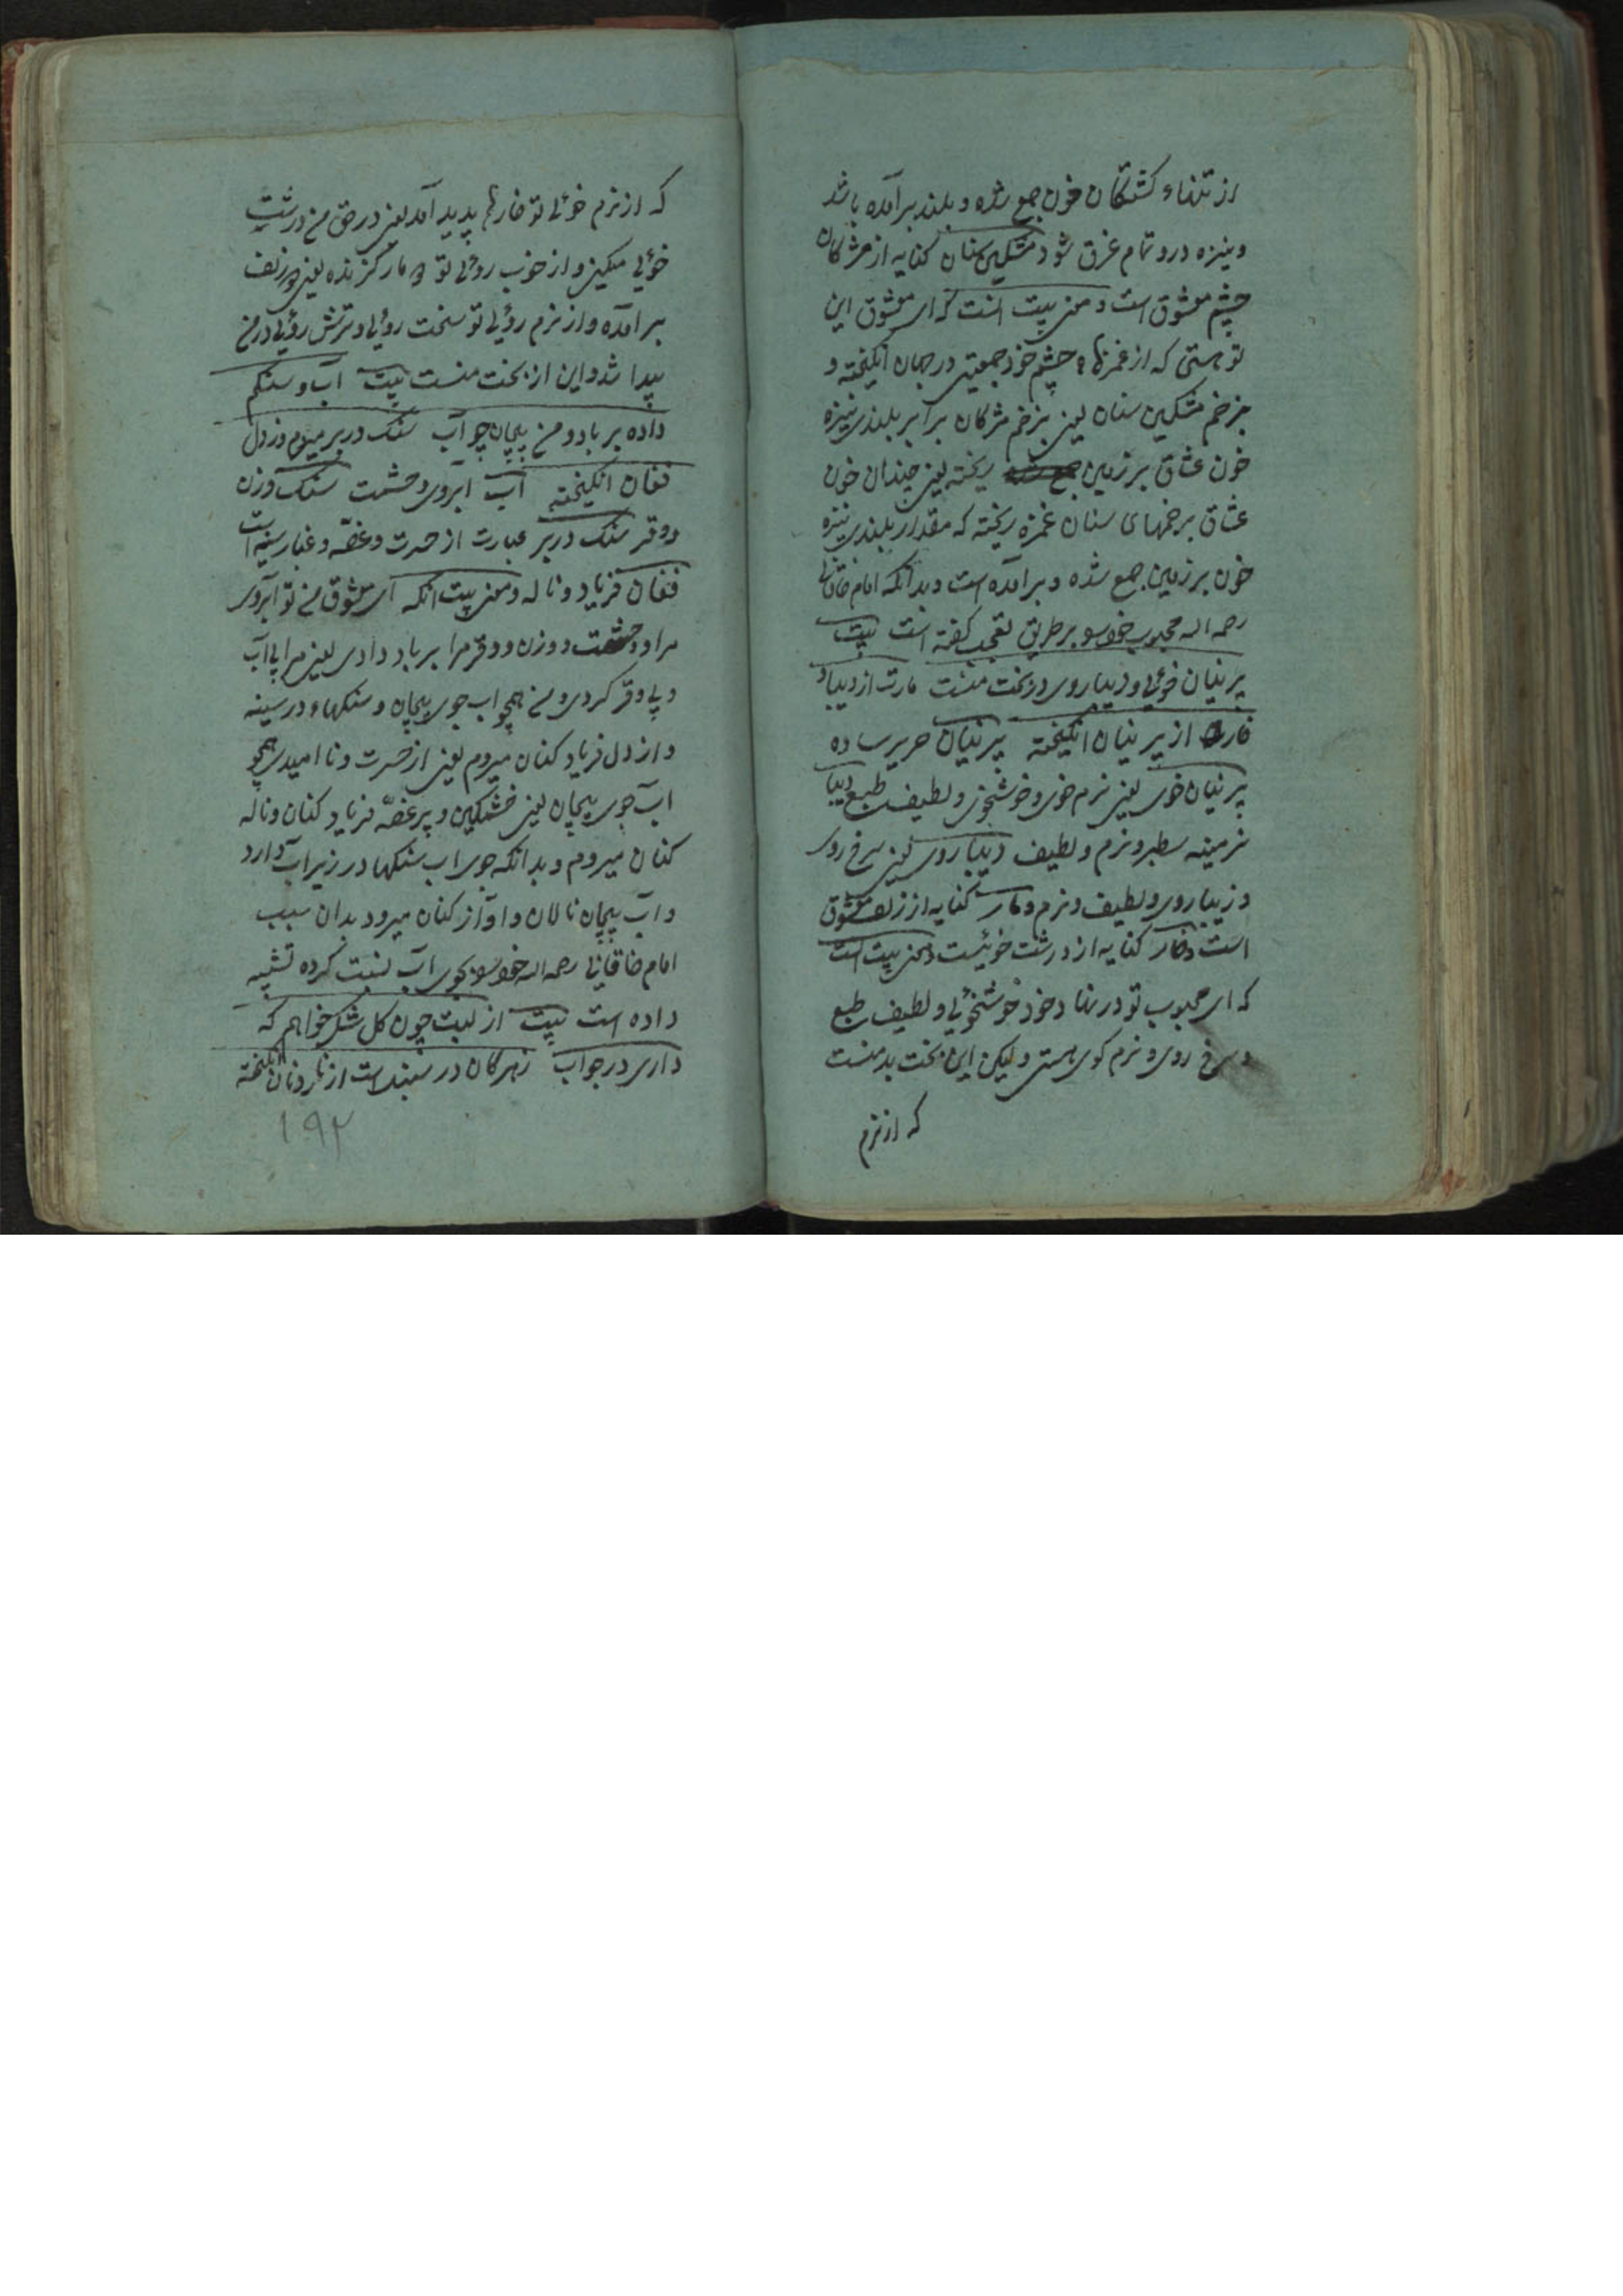 از تنهاء کشتگان خون جمع شده و بلند برآمده باشد
و نیزه درو تمام غرق شود مشکین سنان کنایه از مژکان
چشم معشوق است و معنی بیت انست که ای معشوق این
تو هستی که از غمزهاء چشم خود جمعیتی در جهان انکیخته و
بزخم مشکین سنان یعنی بزخم مژکان برابر بلندی نیزه
خون عشاق بر زمین ریخته یعنی چندان خون
عشاق برخمهای سنان غمزه ریخته که مقدار بلندی نیزه
خون بر زمین جمع شده و برآمده است و بدانکه امام خاقانی
رحمه اله محبوب خودسو بر طریق تعجب کفته است بیت
پرنیان خوئی و دیباروی در بخت منست مارت از دیبا و
خار از پرنیان انکیخته پرنیان حریر ساده
پرنیان خوی یعنی نرم خوی و خوشخوی و لطیف طبع دیبا
نرمینه سطبر و نرم و لطیف دیباروی یعنی سرخ روی
و زیباروی و لطیف و نرم و مار کنایه از زلف معشوق
است و خار کنایه از درشت خوئیست و معنی بیت انست
که ای محبوب تو در نهاد خود خوشخوئی و لطیف طبع
و سرخ روی و نرم کوی هستی ولیکن این بخت بد منست
که از نرم
که از نرم خوئی تو خارها پدید آمد یعنی در حق من درشت
خوئی میکنی و از خوب روئی تو مار کزنده یعنی زلف
برآمده و از نرم روئی تو سخت روئی و ترش روئی در من
پیدا شد و این از بخت منست بیت آب و سنکم
داده بر باد و من پیچان چو آب سنک در بر میروم وز دل
فغان انکیخته آب آبروی و حشمت سنک وزن
و وقر سنک در بر عبارت از حسرت و غصّه و غبار سینه است
فغان فریاد و ناله و معنی بیت انکه ای معشوق من تو آبروی
مرا و حشمت و وزن و وقر مرا بر باد دادی یعنی مرا بی آب
و بی وقر کردی و من همچو اب جوی پیچان و سنکهاء در سینه
و از دل فریاد کنان میروم یعنی از حسرت و ناامیدی همچو
آب جوی پیچان یعنی خشمکین و پر غصّه فریاد کنان و ناله
کنان میروم و بدانکه جوی اب سنکها در زیر اب دارد
و آب پیچان نالان و اواز کنان میرود بدان سبب
امام خاقانی رحمه اله خودسو بجوی آب نسبت کرده تشبیه
داده است بیت از لبت چون کل شکر خواهم که
داری در جواب زهر کان در سنبلست از ناردان انکیخته
۱۹۲